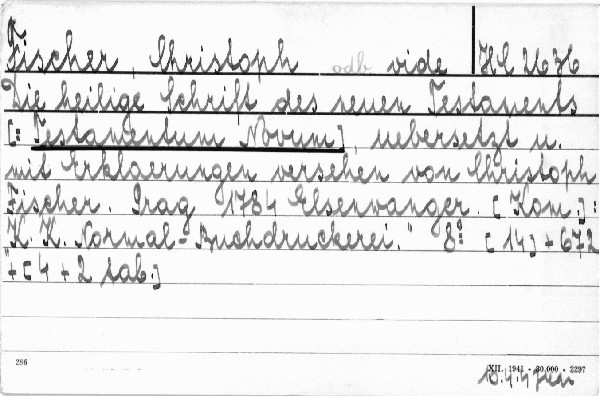 Fischer, Christoph odb. vide HC 2676
Die heilige Schrift des neuen Testaments
[: Testamentum Novum], uebersetzt u.
mit Erklaerungen versehen von Christoph
Fischer. Prag 1784 Elsenwanger. [Kom.]:
K. K. Normal-Buchdruckerei." 8° [14] + 672
"+ [4 + 2 tab.]
286
XII. 1941 - 30.000 - 2297